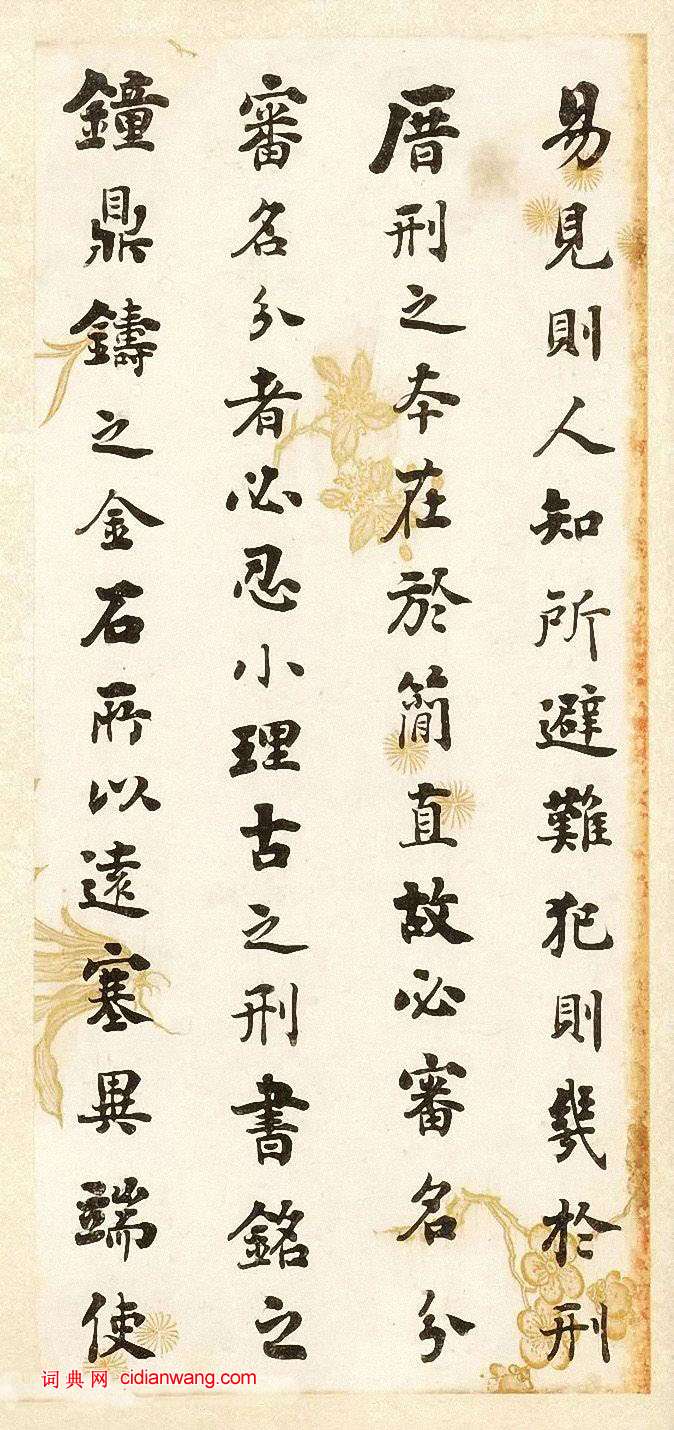 易見則人知所避難犯則幾於刑
厝刑之本在於簡直故必審名分
審名分者必忍小理古之刑書銘之
鐘鼎鑄之金石所以遠塞異端使
词典网 cidianwang.com